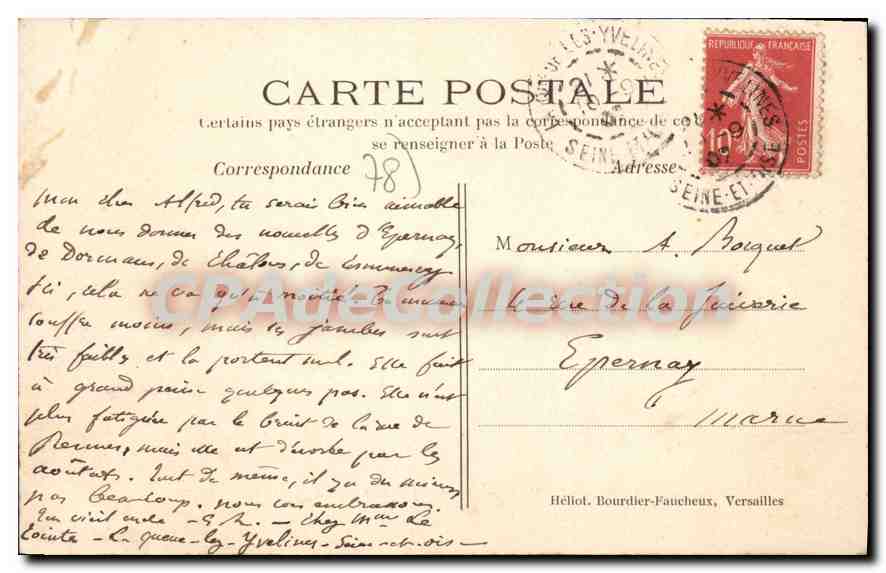 CARTE POSTALE
Certains pays étrangers n'acceptant pas la correspondance de ce
se renseigner à la Poste
Correspondance
78)
Adresse
REPUBLIQUE FRANÇAISE
10
POSTES
YVELINES
SEINE-ET-OISE
Mon cher Alfred, tu serais bien aimable
de nous donner des nouvelles d'Epernay,
de Dormans, de Châlons, de Commercy
Ici, cela ne va qu'à moitié.
souffre moins, mais ses jambes sont
très faibles et la portent mal. Elle fait
à grand peine quelques pas. Elle n'est
plus fatiguée par le bruit de la rue de
Rennes, mais elle est dévorée par les
aoûtats. Tout de même, il y a du mieux
pas beaucoup. nous vous embrassons.
Ton vieil oncle - chez Mme Le
Cointe - La queue-lez-Yvelines - Seine-et-Oise -
Monsieur A. Bocquet
rue de la Juiverie
Epernay
Marne
Héliot. Bourdier-Faucheux, Versailles
CPAdeCollection